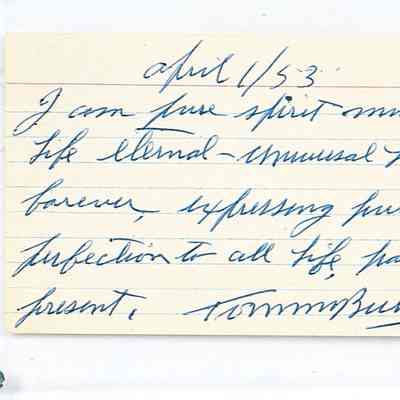 april 1/53
I am pure spirit
Life eternal - universal
forever, expressing
perfection to all life,
present. Tommy